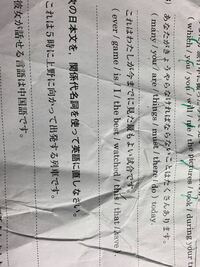 ( which / you / will / you / do / the pictures / took / during your t
) あなたがきょうやらなければならないことはたくさんあります。
( many / your / are / things / must / there / do ) today.
これはわたしが今までに見た最もよい試合です。
( ever / game / is / I / the best / watched / this / that / have ).
次の日本文を、関係代名詞を使って英語に直しなさい。
これは5時に上野に向かって出発する列車です。
彼女が話せる言語は中国語です。